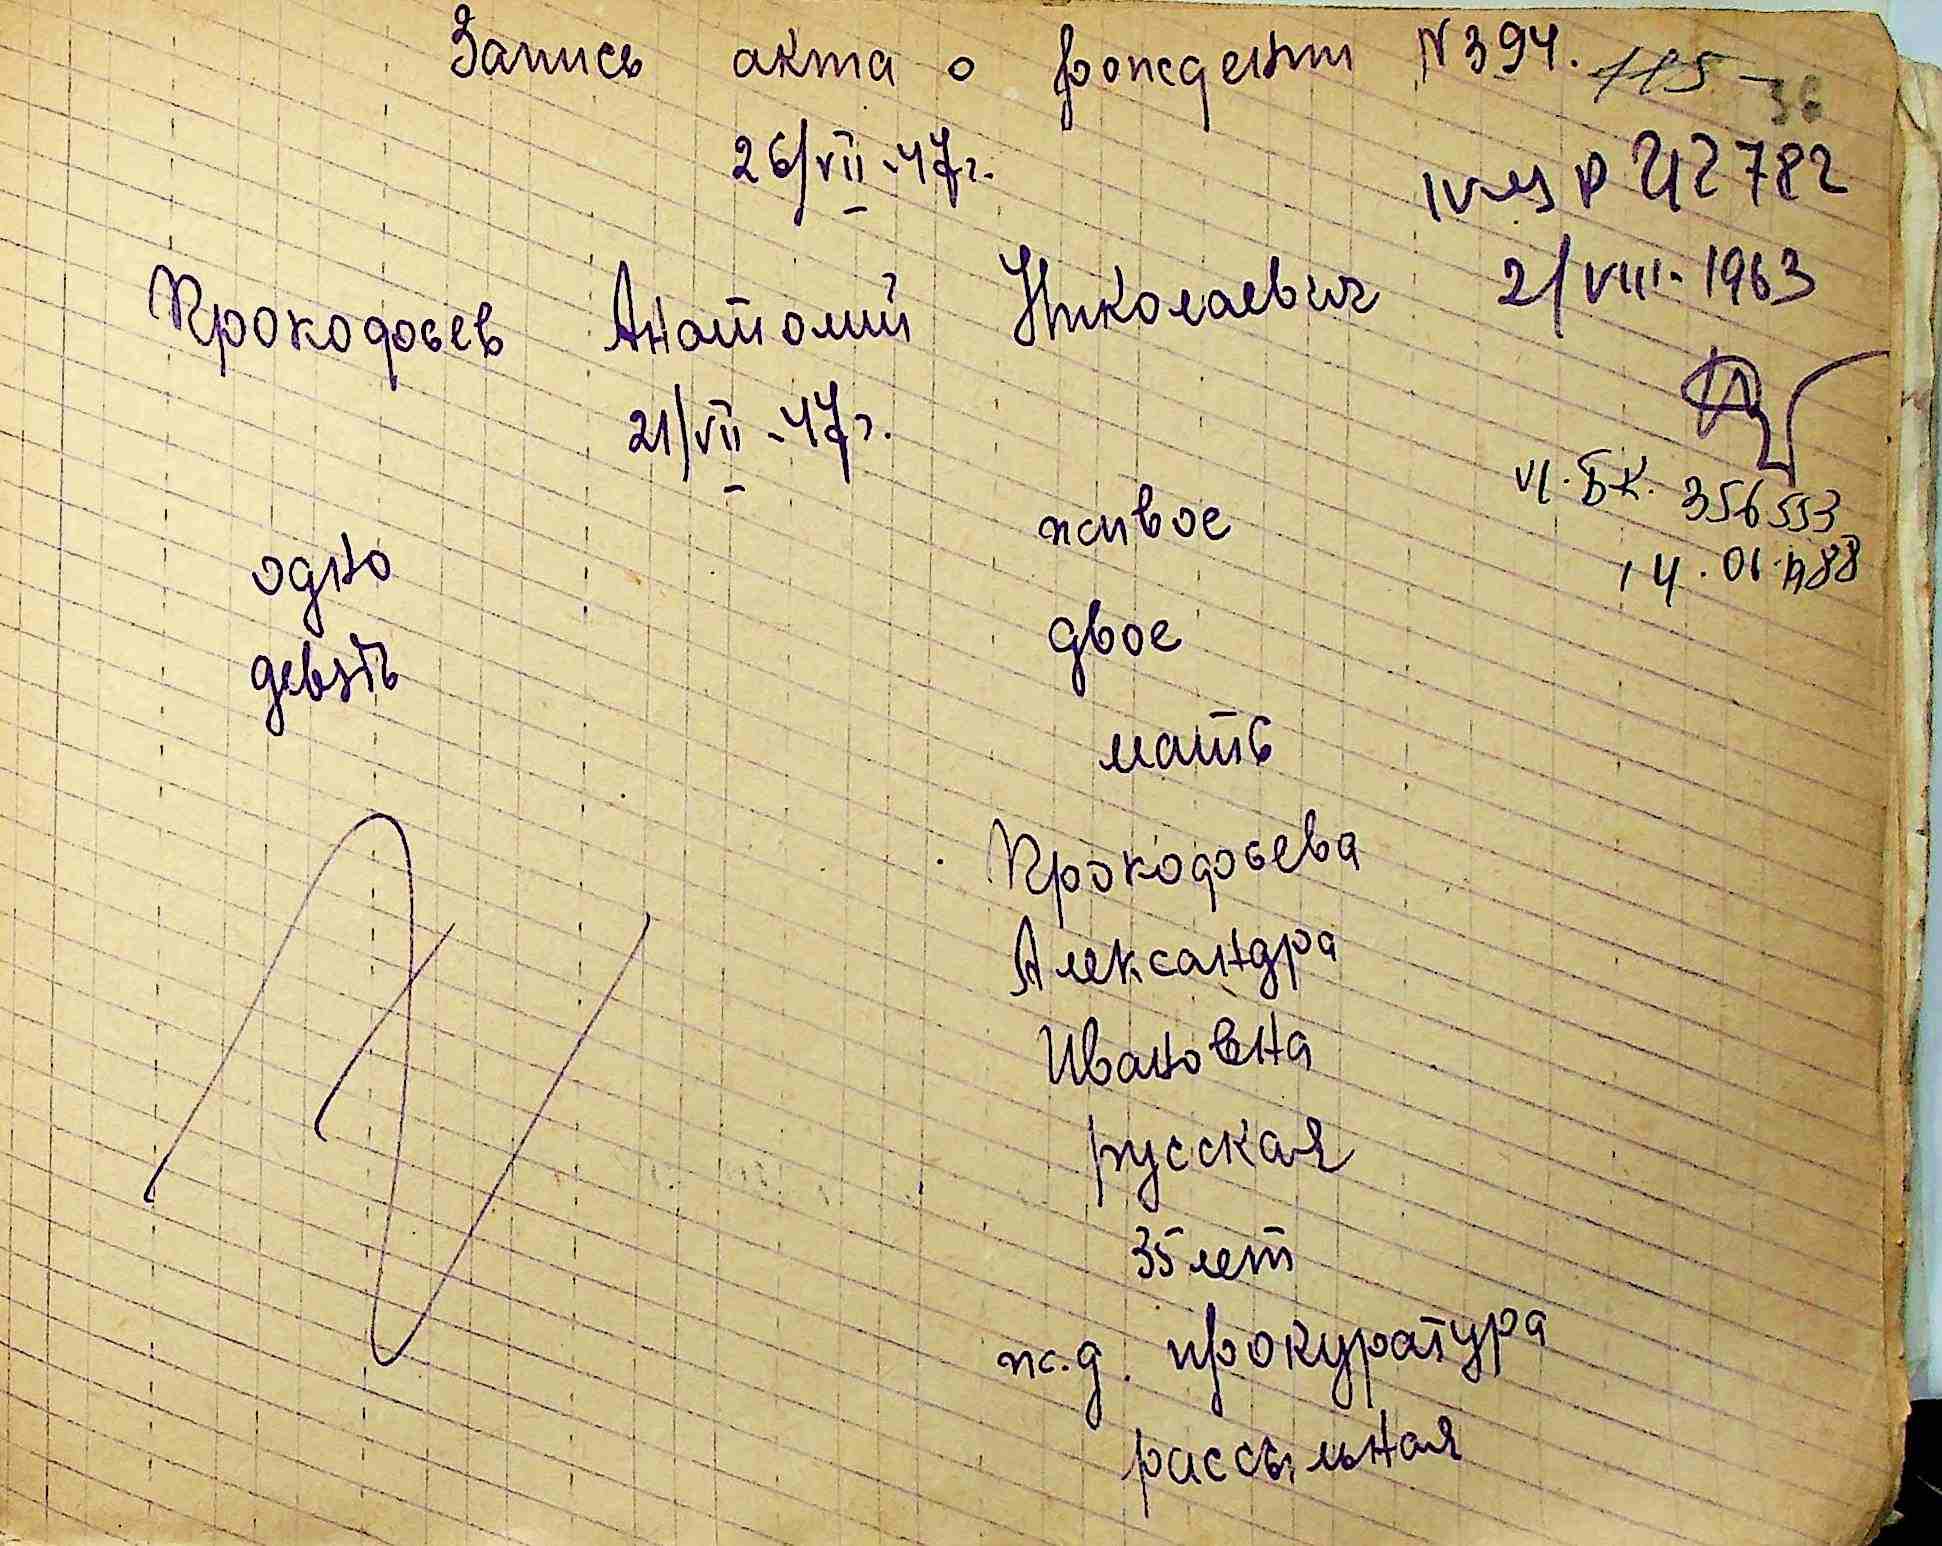 Запись акта о рождении N 394. 115 - 36
26/VII-47г.
Прокофьев Анатолий Николаевич
21/VII-47г.
2/VIII-1963
VI. БК. 356553
14.01.1988
одно живое
девять двое
мать
Прокофьева
Александра
Ивановна
русская
35 лет
ж.д. прокуратура
рассыльная